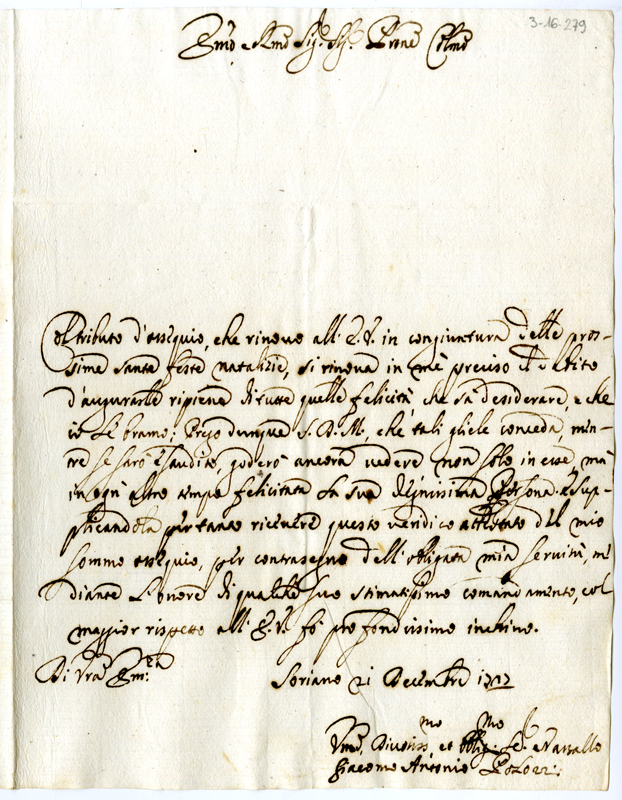 3-16-279
Emo e Rmo Sigr. Sigr. Prone Colmo
Col tributo d'ossequio, che rinovo all' E.V. in congiuntura delle pros-
sime sante feste natalizie, si rinova in me preciso il debito
d'augurarle ripiene di tutte quelle felicità, che sà desiderare, e che
io Le bramo; Prego dunque S. D. M., che tali gliele conceda, men-
tre se sarò esaudito, goderò ancora vedere non solo in esse, mà
in ogn' altro tempo felicitata La sua Degnissima Persona. E sup-
plicandola per tanto ricevere questo veridico attestato del mio
sommo ossequio, per contrasegno dell' obligata mia servitù, me-
diante L'onore di qualche suo stimatissimo comandamento, col
maggior rispetto all' E.V. fò profondissimo inchino.
Di Vra Emza
Soriano 21 Decembre 1717
Vmo, Divotissmo, et Obligmo Sre. e Vassallo
Giacomo Antonio